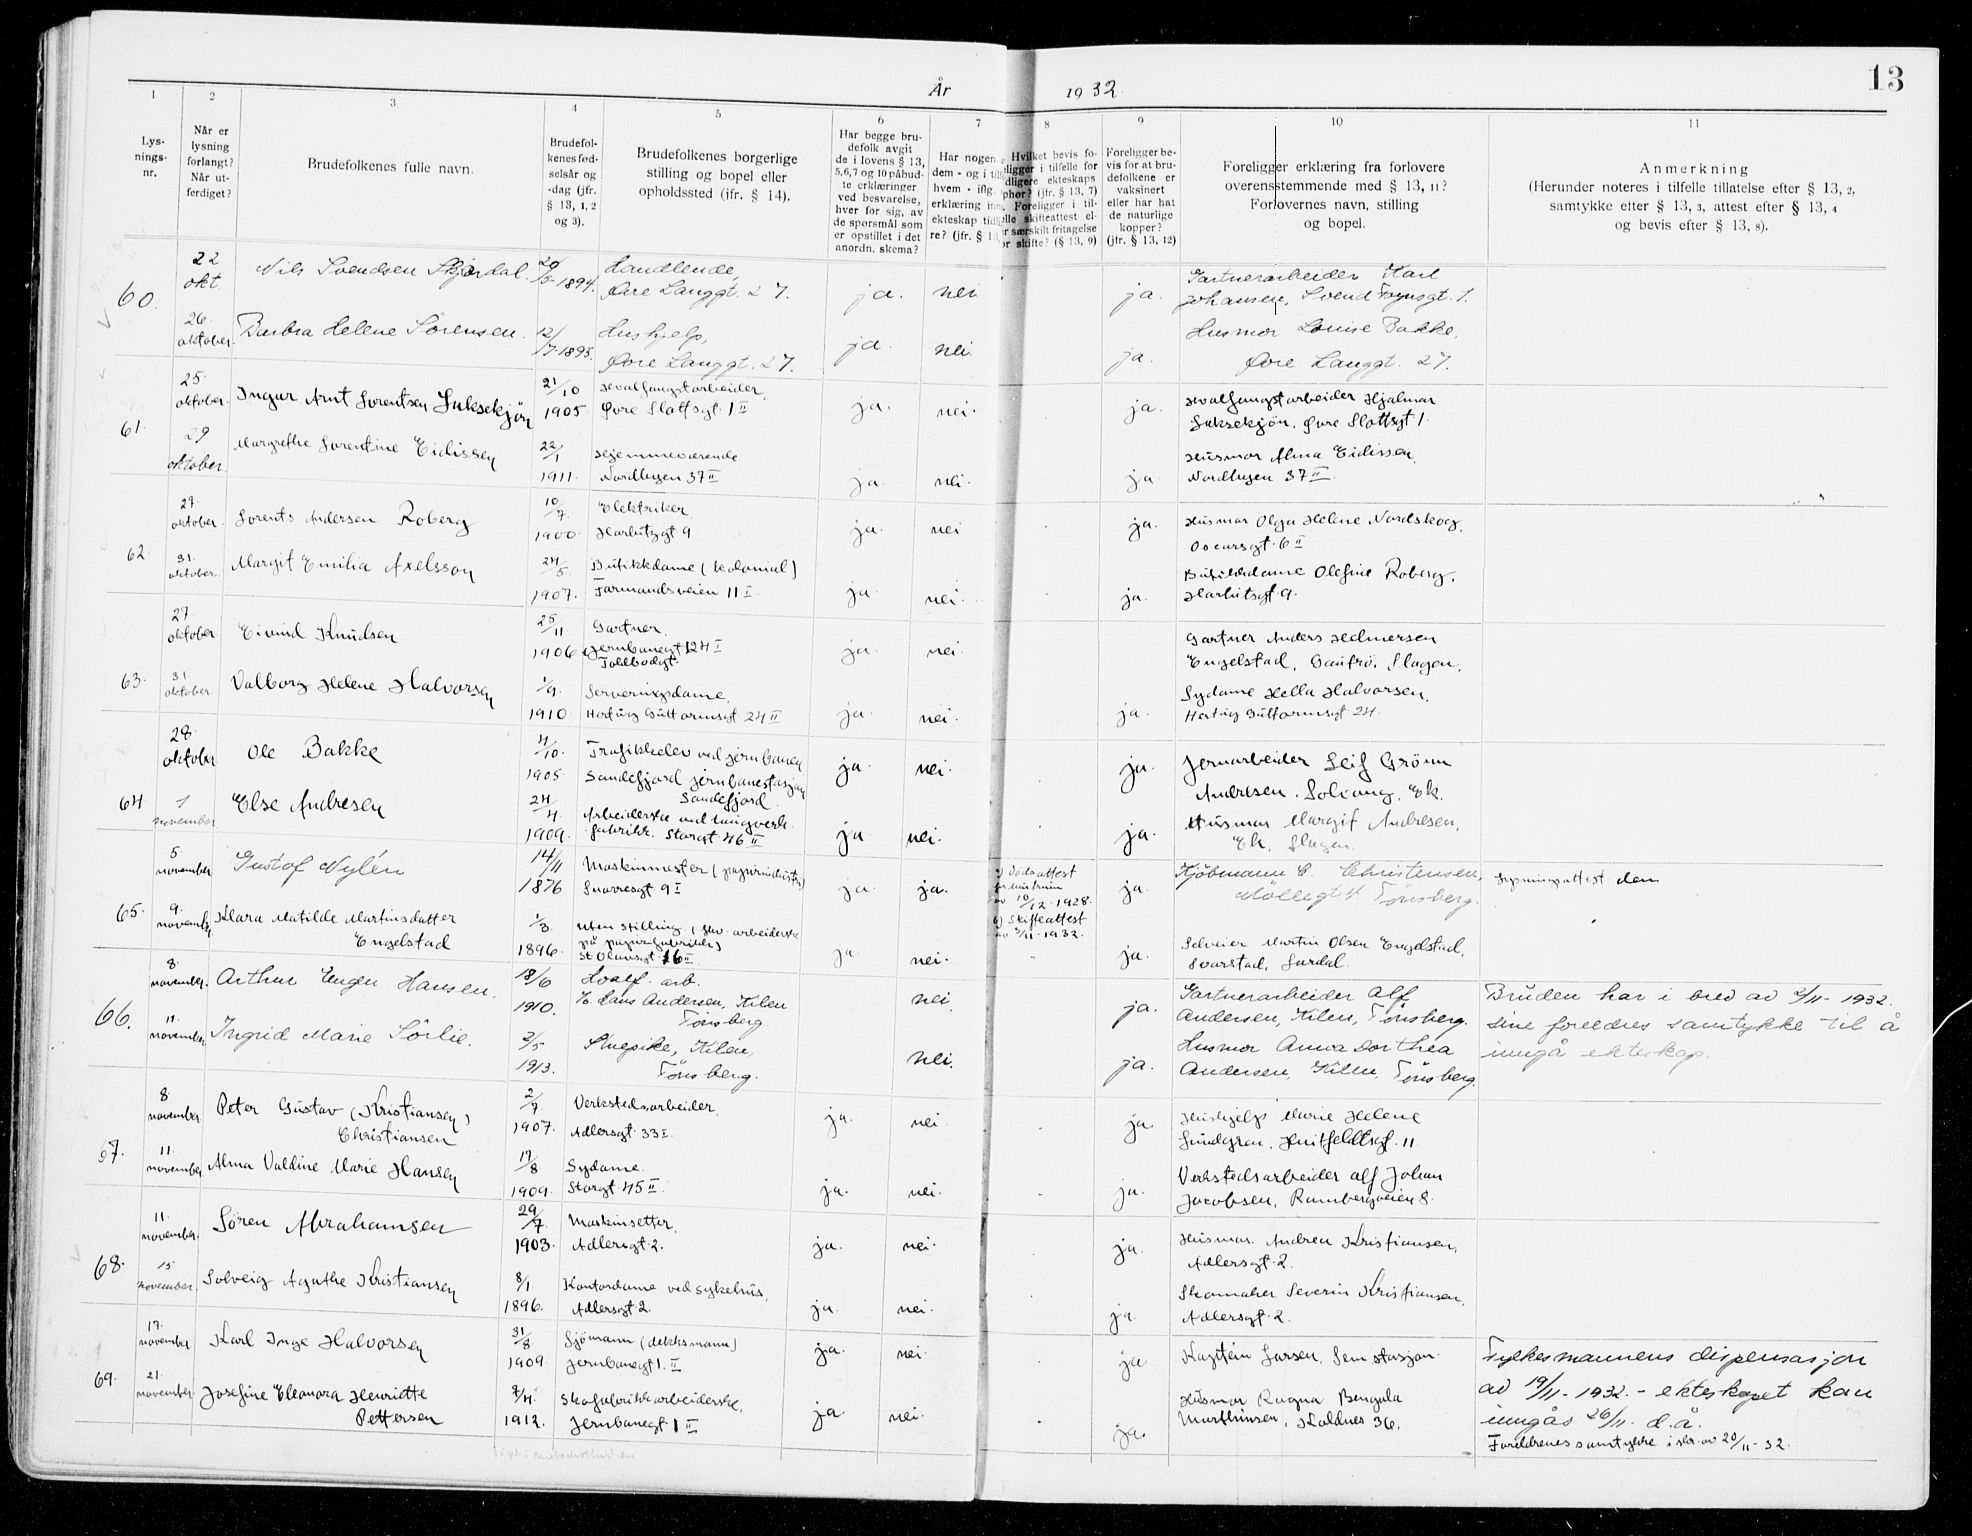 13
År 1932.
1 2 3 4 5 6 7 8 9 10 11
Lysnings-nr.
Når er lysning forlangt? Når utferdiget?
Brudefolkenes fulle navn.
Brudefolkenes fødselsår og -dag (jfr. § 13, 1, 2 og 3).
Brudefolkenes borgerlige stilling og bopel eller opholdssted (jfr. § 14).
Har begge brudefolk avgit de i lovens § 13, 5, 6, 7 og 10 påbudte erklæringer ved besvarelse, hver for sig, av de spørsmål som er opstillet i det anordn. skema?
Har nogen dem - og i hvem - iflg. erklæring ekteskap re? (jfr. § 13
Hvilket bevis foligger i tilfelle for ekteskaps (jfr. § 13, 7) Foreligger i til- skifteattest el- særskilt fritagelse skifte? (§ 13, 9)
Foreligger bevis for at brudefolkene er vaksinert eller har hat de naturlige kopper? (jfr. § 13, 12)
Foreligger erklæring fra forlovere overensstemmende med § 13, 11? Forlovernes navn, stilling og bopel.
Anmerkning
(Herunder noteres i tilfelle tillatelse efter § 13, 2,
samtykke efter § 13, 3, attest efter § 13, 4
og bevis efter § 13, 8).
60. 22 okt. Nils Svendsen 20/5-1894. Handlende, Øvre Langgt. 27. ja. nei ja. Gartnerarbeider Karl Johansen, Svend Foynsgt. 1.
26. oktober Barbra Helene Sørensen. 12/7-1895. Hushjelp, Øvre Langgt. 27. ja. nei. ja. Husmor Louise Bakke, Øvre Langgt. 27.
61. 25. oktober. Ingvar Arnt Lorentsen 21/10 1905 Hvalfangstarbeider, Øvre Slottsgt. 1 II ja. nei. ja. Hvalfangstarbeider Hjalmar Øvre Slottsgt 1.
29 oktober. Margrethe Lorentine Eidissen 22/1 1911. Hjemmeværende Nordbyen 37 II ja. nei. ja. Husmor Alma Eidissen, Nordbyen 37 II.
62. 27. oktober. Lorents Andersen Roberg 10/7. 1900. Harbitzgt 9 Elektriker ja. nei ja. Husmor Olga Helene Nordskog, Oscarsgt. 6 II
31. oktober. Margit Emilia Axelsson 24/5. 1907. Butikkdame (kolonial) Farmandsveien 11 I. ja. nei. ja. Butikkdame Olefine Roberg,
63. 27 oktober Eivind Knudsen 25/11 1906 Gartner, Tollbodgt. ja. nei. Gartner Anders Hedmersen Engelstad, Slagen.
31 oktober Valborg Helene Halvorsen 1/9. 1910. Serveringsdame, Hertug Guttormsgt 24 II ja. nei. ja. Sydame Hella Halvorsen, Hertug Guttormsgt. 24.
64 28. oktober Ole Bakke 4/10. 1905. Trafikkelev ved jernbanen Sandefjord jernbanestasjon Sandefjord. ja. nei. ja. Jernarbeider Leif Grönn Andresen. Solvang, Ek.
1 november Else Andresen 24/4. 1909. Arbeiderske ved fabrikk. Storgt 46 II ja nei. ja. Husmor Margit Andresen, Ek, Slagen.
65. 5. november. Gustof Nylén 14/11 1876 Maskinmester (papirindustri) Snorresgt 9 I ja ja. a) Dødsattest for hustrum av 10/12. 1928. b) Skifteattest av 3/11. 1932. ja. Kjöbmann C. Christensen, Möllegt. 4 Tönsberg. Lysningsattest dem
9. november Klara Matilde Martinsdatter Engelstad 1/3. 1896. Uten stilling (fhv. arbeiderske på papirfabrikk) St Olavsgt. 16 II. ja. nei. ja. Selveier Martin Olsen Engelstad, Svarstad, Lardal.
66. 8. november. Arthur Eugen Hansen. 18/6 1910. Hvalf. arb. ℅ Lars Andersen, Kilen Tönsberg nei. ja. Gartnerarbeider Alf Andersen, Kilen, Tönsberg. Bruden har i brev av 2/11-1932. sine foreldres samtykke til å inngå ekteskap.
11. november. Ingrid Marie Sörlie. 2/5 1913. Stuepike, Kilen, Tönsberg. nei. ja. Husmor Anna Dorthea Andersen, Kilen, Tönsberg.
67. 8. november Peter Gustav (Kristiansen) Christiansen 2/7 1907. Verkstedsarbeider, Adlersgt. 33 I. ja. nei. ja. Hushjelp Marie Helene Lundgren, Huitfeldtsgt. 11
11. november Alma Valdine Marie Hansen 17/8 1909. Sydame. Storgt. 45 II. ja. nei. ja. Verkstedsarbeider Alf Johan Jacobsen, Rambergveien 8.
68. 11. november. Sören Abrahamsen 29/7. 1903. Maskinsetter, Adlersgt. 2. ja. nei. ja. Husmor Andrea Kristiansen, Adlersgt. 2.
15 november. Solveig Agathe Kristiansen 8/1. 1896. Kontordame ved sykehus, Adlersgt 2. ja. nei. ja. Skomaker Severin Kristiansen, Adlersgt. 2.
69. 17. november Karl Inge Halvorsen 31/8. 1909. Sjömann (dekksmann) Jernbanegt 1. II ja. nei. ja. Kaptein Larsen, Sem stasjon. Fylkesmannens dispensasjon av 19/11-1932. - ekteskapet kan inngås 26/11. d.å.
21. november Josefine Eleonora Henriette Pettersen 7/4. 1912. Skofabrikkarbeiderske, Jernbanegt 1 II ja. nei. ja. Husmor Ragna Bengula Marthinsen, Kaldnes 36. Foreldrenes samtykke i skr. av 20/11-32.